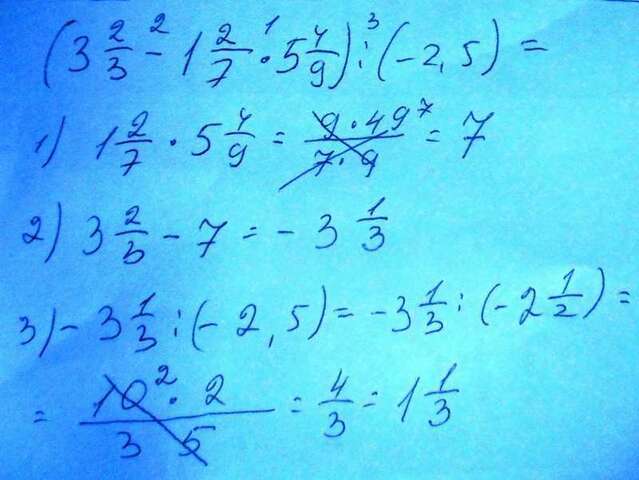 (3 2/3 -² 1 2/7 ·¹ 5 4/9) :³ (-2,5) =
1) 1 2/7 · 5 4/9 = 9 · 49⁷ / 7 · 9 = 7
2) 3 2/3 - 7 = - 3 1/3
3) - 3 1/3 : (- 2,5) = - 3 1/3 : (- 2 1/2) =
= 10² · 2 / 3 5 = 4/3 = 1 1/3